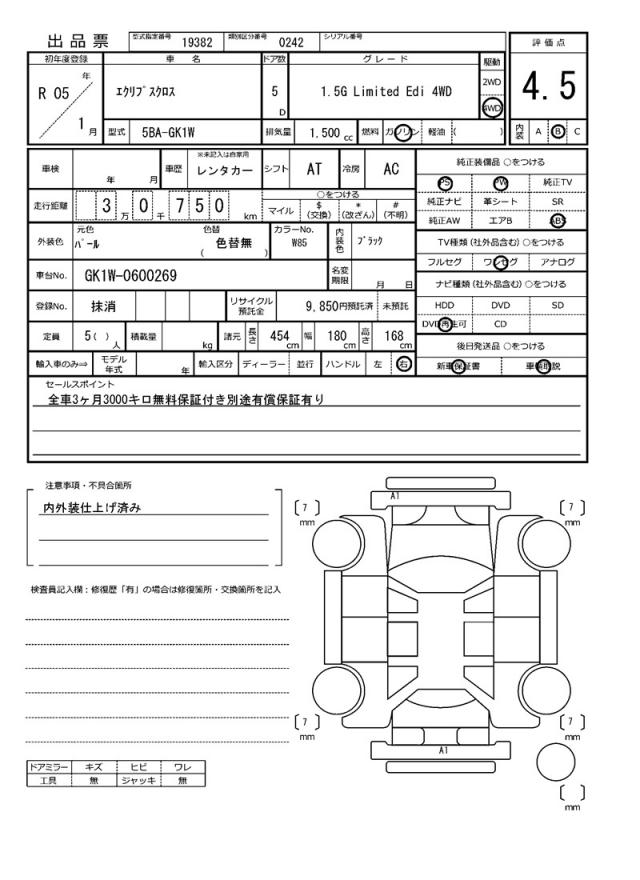 出品票 型式指定番号 19382 類別区分番号 0242 シリアル番号
評価点
4.5
内装 A B C
初年度登録 車 名 ドア数 グレード 駆動
R 05 年 1 月 ｴｸﾘﾌﾟｽｸﾛｽ 5 D 1.5G Limited Edi 4WD 2WD 4WD
型式 5BA-GK1W 排気量 1.500 cc 燃料 ガソリン 軽油 ( )
車検 年 月 車歴 ※未記入は自家用 レンタカー シフト AT 冷房 AC
走行距離 3 万 0 千 7 5 0 km ○をつける
マイル $ (交換) * (改ざん) # (不明)
外装色 元色 ﾊﾟｰﾙ 色替 色替無 ( ) カラーNo. W85 内装色 ﾌﾞﾗｯｸ
車台No. GK1W-0600269 名変期限 月 日
登録No. 抹消 リサイクル預託金 9,850円預託済 未預託
定員 5( ) 人 積載量 kg 諸元 長さ 454 cm 幅 180 cm 高さ 168 cm
輸入車のみ⇒ モデル年式 年 輸入区分 ディーラー 並行 ハンドル 左 右
純正装備品 ○をつける
PS PW 純正TV
純正ナビ 革シート SR
純正AW エアB ABS
TV種類 (社外品含む) ○をつける
フルセグ ワンセグ アナログ
ナビ種類 (社外品含む) ○をつける
HDD DVD SD
DVD再生可 CD
後日発送品 ○をつける
新車保証書 車輌取説
セールスポイント
全車3ヶ月3000キロ無料保証付き別途有償保証有り
注意事項・不具合箇所
内外装仕上げ済み
検査員記入欄：修復歴「有」の場合は修復箇所・交換箇所を記入
ドアミラー キズ ヒビ ワレ
工具 無 ジャッキ 無
A1
[ 7 ] mm
[ 7 ] mm
[ 7 ] mm
[ 7 ] mm
A1
[ ] mm